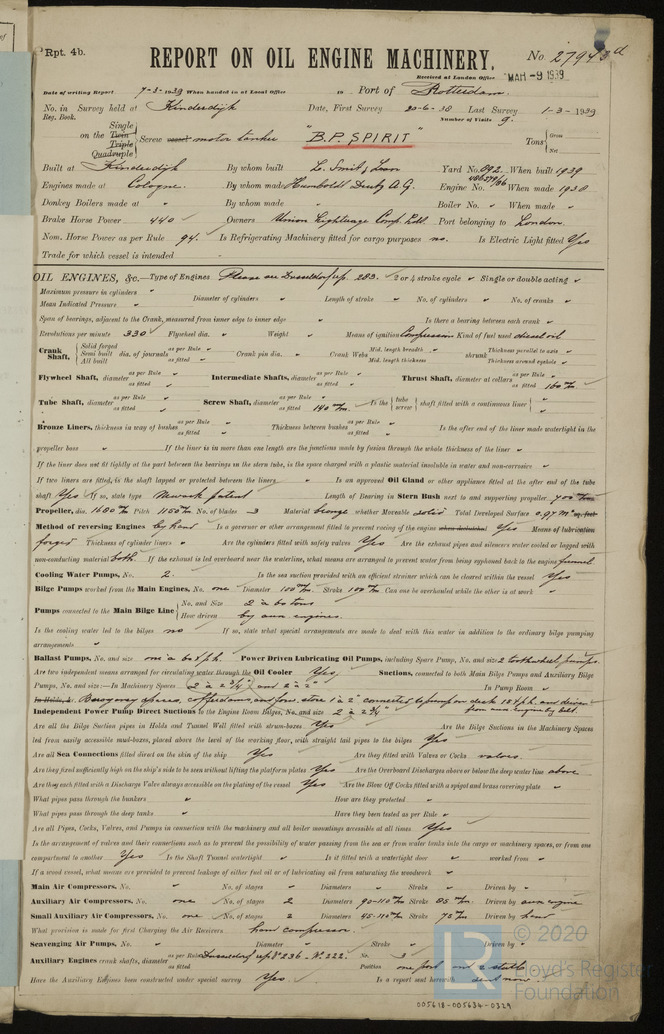 Rpt. 4b.
REPORT ON OIL ENGINE MACHINERY.
No. 27943
Received at London Office MAR -9 1939
Date of writing Report 7-3-1939 When handed in at Local Office 19 Port of Rotterdam.
No. in Survey held at Kinderdijk Date, First Survey 20-6-38 Last Survey 1-3-1939
Reg. Book. Number of Visits 9.
Single
on the Twin
Triple
Quadruple
Screw vessel motor tanker "B.P. SPIRIT" Tons Gross
Net
Built at Kinderdijk By whom built L. Smit & Zoon Yard No. 892 When built 1939
Engines made at Cologne. By whom made Humboldt Deutz A.G. Engine No. When made 1938
Donkey Boilers made at " By whom made " Boiler No. " When made "
Brake Horse Power 440 Owners Union Lighterage Comp. Ltd. Port belonging to London.
Nom. Horse Power as per Rule 94. Is Refrigerating Machinery fitted for cargo purposes no. Is Electric Light fitted Yes
Trade for which vessel is intended
OIL ENGINES, &c.—Type of Engines Please see Dusseldorf rep. 283. 2 or 4 stroke cycle " Single or double acting "
Maximum pressure in cylinders " Diameter of cylinders " Length of stroke " No. of cylinders " No. of cranks "
Mean Indicated Pressure "
Span of bearings, adjacent to the Crank, measured from inner edge to inner edge " Is there a bearing between each crank "
Revolutions per minute 330 Flywheel dia. " Weight " Means of ignition Compression Kind of fuel used diesel oil
Crank Shaft, Solid forged Semi built All built dia. of journals as per Rule as fitted Crank pin dia. " Crank Webs Mid. length breadth Mid. length thickness shrunk Thickness parallel to axis Thickness around eyehole
Flywheel Shaft, diameter as per Rule as fitted Intermediate Shafts, diameter as per Rule as fitted Thrust Shaft, diameter at collars as per Rule as fitted 160 m/m.
Tube Shaft, diameter as per Rule as fitted Screw Shaft, diameter as per Rule as fitted 140 m/m. Is the tube screw shaft fitted with a continuous liner
Bronze Liners, thickness in way of bushes as per Rule as fitted Thickness between bushes as per Rule as fitted Is the after end of the liner made watertight in the
propeller boss " If the liner is in more than one length are the junctions made by fusion through the whole thickness of the liner "
If the liner does not fit tightly at the part between the bearings in the stern tube, is the space charged with a plastic material insoluble in water and non-corrosive "
If two liners are fitted, is the shaft lapped or protected between the liners " Is an approved Oil Gland or other appliance fitted at the after end of the tube
shaft Yes If so, state type Newark patent Length of Bearing in Stern Bush next to and supporting propeller 700 m/m
Propeller, dia. 1650 m/m Pitch 1150 m/m No. of blades 3 Material bronze whether Moveable solid Total Developed Surface 0.97 M² sq. feet
Method of reversing Engines by hand Is a governor or other arrangement fitted to prevent racing of the engine when declutched Yes Means of lubrication
forced Thickness of cylinder liners " Are the cylinders fitted with safety valves Yes Are the exhaust pipes and silencers water cooled or lagged with
non-conducting material both. If the exhaust is led overboard near the waterline, what means are arranged to prevent water being syphoned back to the engine funnel
Cooling Water Pumps, No. 2. Is the sea suction provided with an efficient strainer which can be cleared within the vessel Yes
Bilge Pumps worked from the Main Engines, No. one Diameter 100 m/m Stroke 100 m/m Can one be overhauled while the other is at work "
Pumps connected to the Main Bilge Line No. and Size 2 à 60 tons
How driven by aux. engines.
Is the cooling water led to the bilges no If so, state what special arrangements are made to deal with this water in addition to the ordinary bilge pumping
arrangements "
Ballast Pumps, No. and size one à 60 t.p.h. Power Driven Lubricating Oil Pumps, including Spare Pump, No. and size 2 toothwheel pumps.
Are two independent means arranged for circulating water through the Oil Cooler Yes Suctions, connected to both Main Bilge Pumps and Auxiliary Bilge
Pumps, No. and size:—In Machinery Spaces 2 à 2¾" and 2 à 2" In Pump Room "
In Holds, &c. Buoyancy spaces, cofferdams and fore store 1 à 2" connected to pump on deck 18 t.p.h. and driven
from aux engine by belt
Independent Power Pump Direct Suctions to the Engine Room Bilges, No. and size 2 à 2¾"
Are all the Bilge Suction pipes in Holds and Tunnel Well fitted with strum-boxes Yes Are the Bilge Suctions in the Machinery Spaces
led from easily accessible mud-boxes, placed above the level of the working floor, with straight tail pipes to the bilges Yes
Are all Sea Connections fitted direct on the skin of the ship Yes Are they fitted with Valves or Cocks valves.
Are they fixed sufficiently high on the ship's side to be seen without lifting the platform plates Yes Are the Overboard Discharges above or below the deep water line above
Are they each fitted with a Discharge Valve always accessible on the plating of the vessel Yes Are the Blow Off Cocks fitted with a spigot and brass covering plate "
What pipes pass through the bunkers " How are they protected "
What pipes pass through the deep tanks " Have they been tested as per Rule "
Are all Pipes, Cocks, Valves, and Pumps in connection with the machinery and all boiler mountings accessible at all times Yes
Is the arrangement of valves and their connections such as to prevent the possibility of water passing from the sea or from water tanks into the cargo or machinery spaces, or from one
compartment to another Yes Is the Shaft Tunnel watertight " Is it fitted with a watertight door " worked from "
If a wood vessel, what means are provided to prevent leakage of either fuel oil or of lubricating oil from saturating the woodwork "
Main Air Compressors, No. " No. of stages " Diameters " Stroke " Driven by "
Auxiliary Air Compressors, No. one No. of stages 2 Diameters 90-110 m/m Stroke 85 m/m. Driven by aux engine
Small Auxiliary Air Compressors, No. one No. of stages 2 Diameters 45-110 m/m Stroke 75 m/m Driven by hand
What provision is made for first Charging the Air Receivers hand compressor.
Scavenging Air Pumps, No. " Diameter " Stroke " Driven by "
Auxiliary Engines crank shafts, diameter as per Rule as fitted Dusseldorf rep No 236 - No 222. No. 3
Position one port 2 starb.
Have the Auxiliary Engines been constructed under special survey Yes. Is a report sent herewith sent now.
© 2020
LR
Lloyd's Register
Foundation
005618-005634-0329